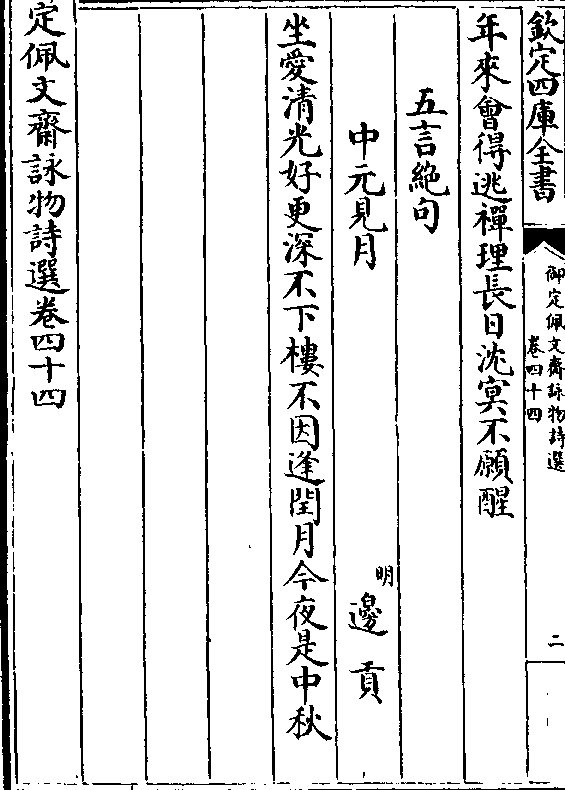 欽定四庫全書
御定佩文齋詠物詩選
卷四十四
二
年來會得逃禪理長日沈冥不願醒
五言絶句
中元見月
明邊貢
坐愛清光好更深不下樓不因逢閏月今夜是中秋
定佩文齋詠物詩選卷四十四